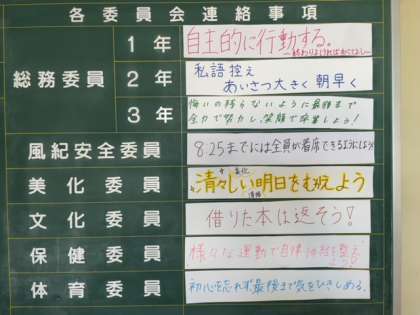 各委員会連絡事項
総務委員
1年
自主的に行動する。
―終わりよければすべてよし―
2年
私語控え
あいさつ大きく 朝早く
3年
悔いの残らないように最後まで
全力で努力し、笑顔で卒業しよう!
風紀安全委員
8:25までには全員が着席できるようにしよう
美化委員
清々しい明日をむかえよう
文化委員
借りた本は返そう!
保健委員
様々な運動で自律神経を整え
体育委員
初心を忘れず最後まで気をひきしめる。